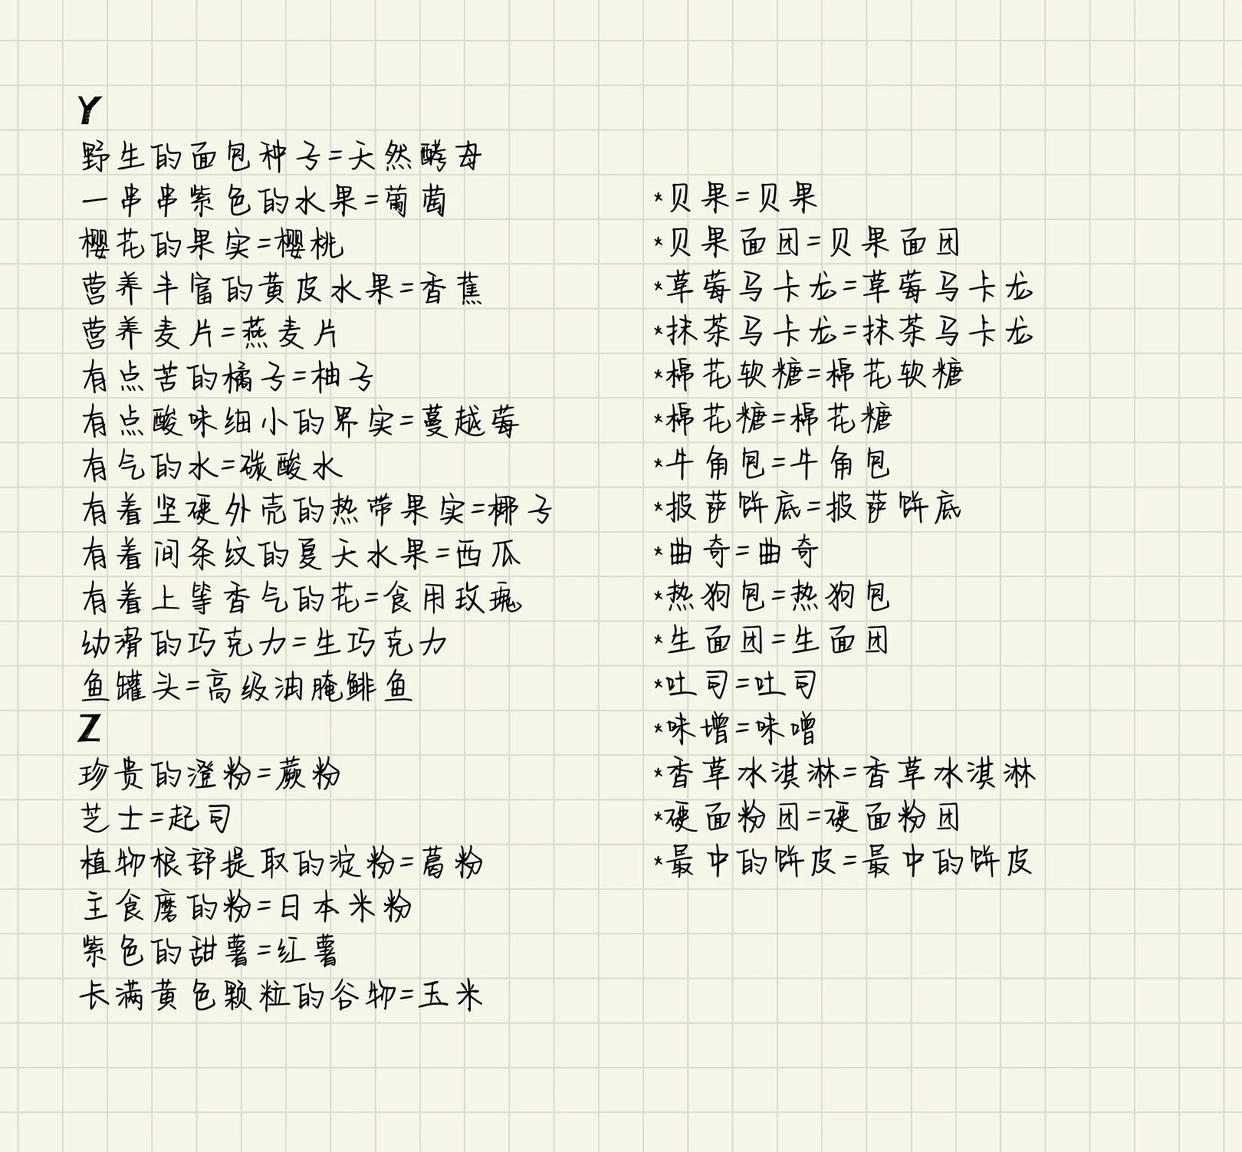 Y
野生的面包种子=天然酵母
一串串紫色的水果=葡萄
樱花的果实=樱桃
营养丰富的黄皮水果=香蕉
营养麦片=燕麦片
有点苦的橘子=柚子
有点酸味细小的果实=蔓越莓
有气的水=碳酸水
有着坚硬外壳的热带果实=椰子
有着间条纹的夏天水果=西瓜
有着上等香气的花=食用玫瑰
幼滑的巧克力=生巧克力
鱼罐头=高级油腌鲱鱼
Z
珍贵的澄粉=蕨粉
芝士=起司
植物根部提取的淀粉=葛粉
主食磨的粉=日本米粉
紫色的甜薯=红薯
卡满黄色颗粒的谷物=玉米
*贝果=贝果
*贝果面团=贝果面团
*草莓马卡龙=草莓马卡龙
*抹茶马卡龙=抹茶马卡龙
*棉花软糖=棉花软糖
*棉花糖=棉花糖
*牛角包=牛角包
*披萨饼底=披萨饼底
*曲奇=曲奇
*热狗包=热狗包
*生面团=生面团
*吐司=吐司
*味增=味噌
*香草冰淇淋=香草冰淇淋
*硬面粉团=硬面粉团
*最中的饼皮=最中的饼皮